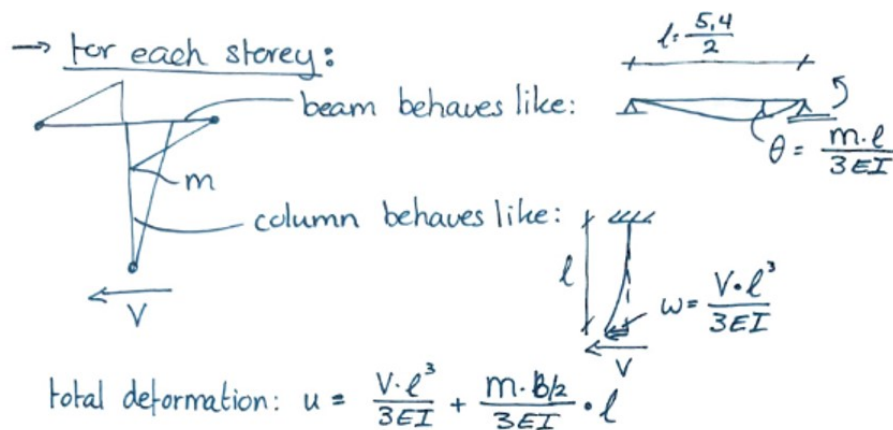 → for each storey:
l = 5,4/2
beam behaves like:
θ = m·l/3EI
m
column behaves like:
l
w = V·l³/3EI
V
V
total deformation: u = V·l³/3EI + m·b/2/3EI · l